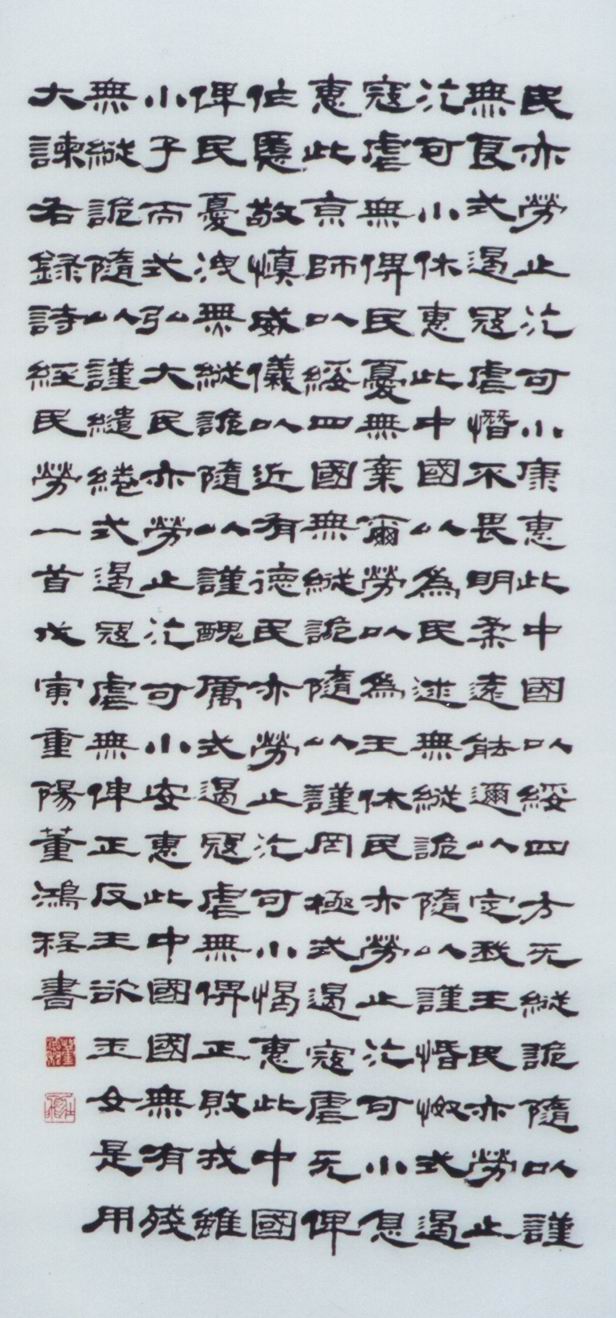 民亦勞止汔可小康惠此中國以綏四方无縱詭隨以謹
無良式遏寇虐憯不畏明柔遠能邇以定我王民亦勞止
汔可小休惠此中國以為民逑無縱詭隨以謹惛怓式遏
寇虐無俾民憂無棄爾勞以為王休民亦勞止汔可小息
惠此京師以綏四國無縱詭隨以謹罔極式遏寇虐无俾
作慝敬慎威儀以近有德民亦勞止汔可小愒惠此中國
俾民憂洩無縱詭隨以謹醜厲式遏寇虐無俾正敗戎雖
小子而式弘大民亦勞止汔可小安惠此中國國無有殘
無縱詭隨以謹繾綣式遏寇虐無俾正反王欲玉女是用
大諫右錄詩經民勞一首戊寅重陽董鴻程書